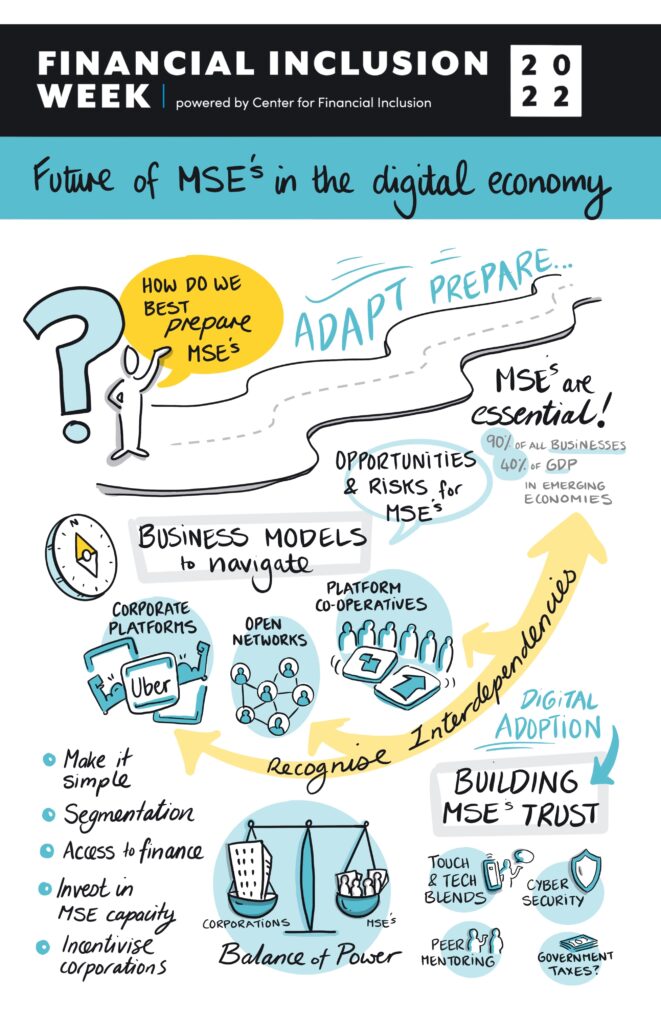 FINANCIAL INCLUSION
WEEK | powered by Center for Financial Inclusion
20
22
Future of MSE's in the digital economy
HOW DO WE
BEST
prepare
MSE's
ADAPT PREPARE...
MSE's are
essential!
90% OF ALL BUSINESSES
40% OF GDP
IN EMERGING
ECONOMIES
OPPORTUNITIES
& RISKS for
MSE's
N
BUSINESS MODELS
to navigate
CORPORATE
PLATFORMS
Uber
OPEN
NETWORKS
PLATFORM
CO-OPERATIVES
Recognise Interdependencies
DIGITAL
ADOPTION
BUILDING
MSE's TRUST
Make it
simple
Segmentation
Access to finance
Invest in
MSE capacity
Incentivise
corporations
CORPORATIONS
MSE's
Balance of Power
TOUCH
& TECH
BLENDS
CYBER
SECURITY
PEER
MENTORING
GOVERNMENT
TAXES?